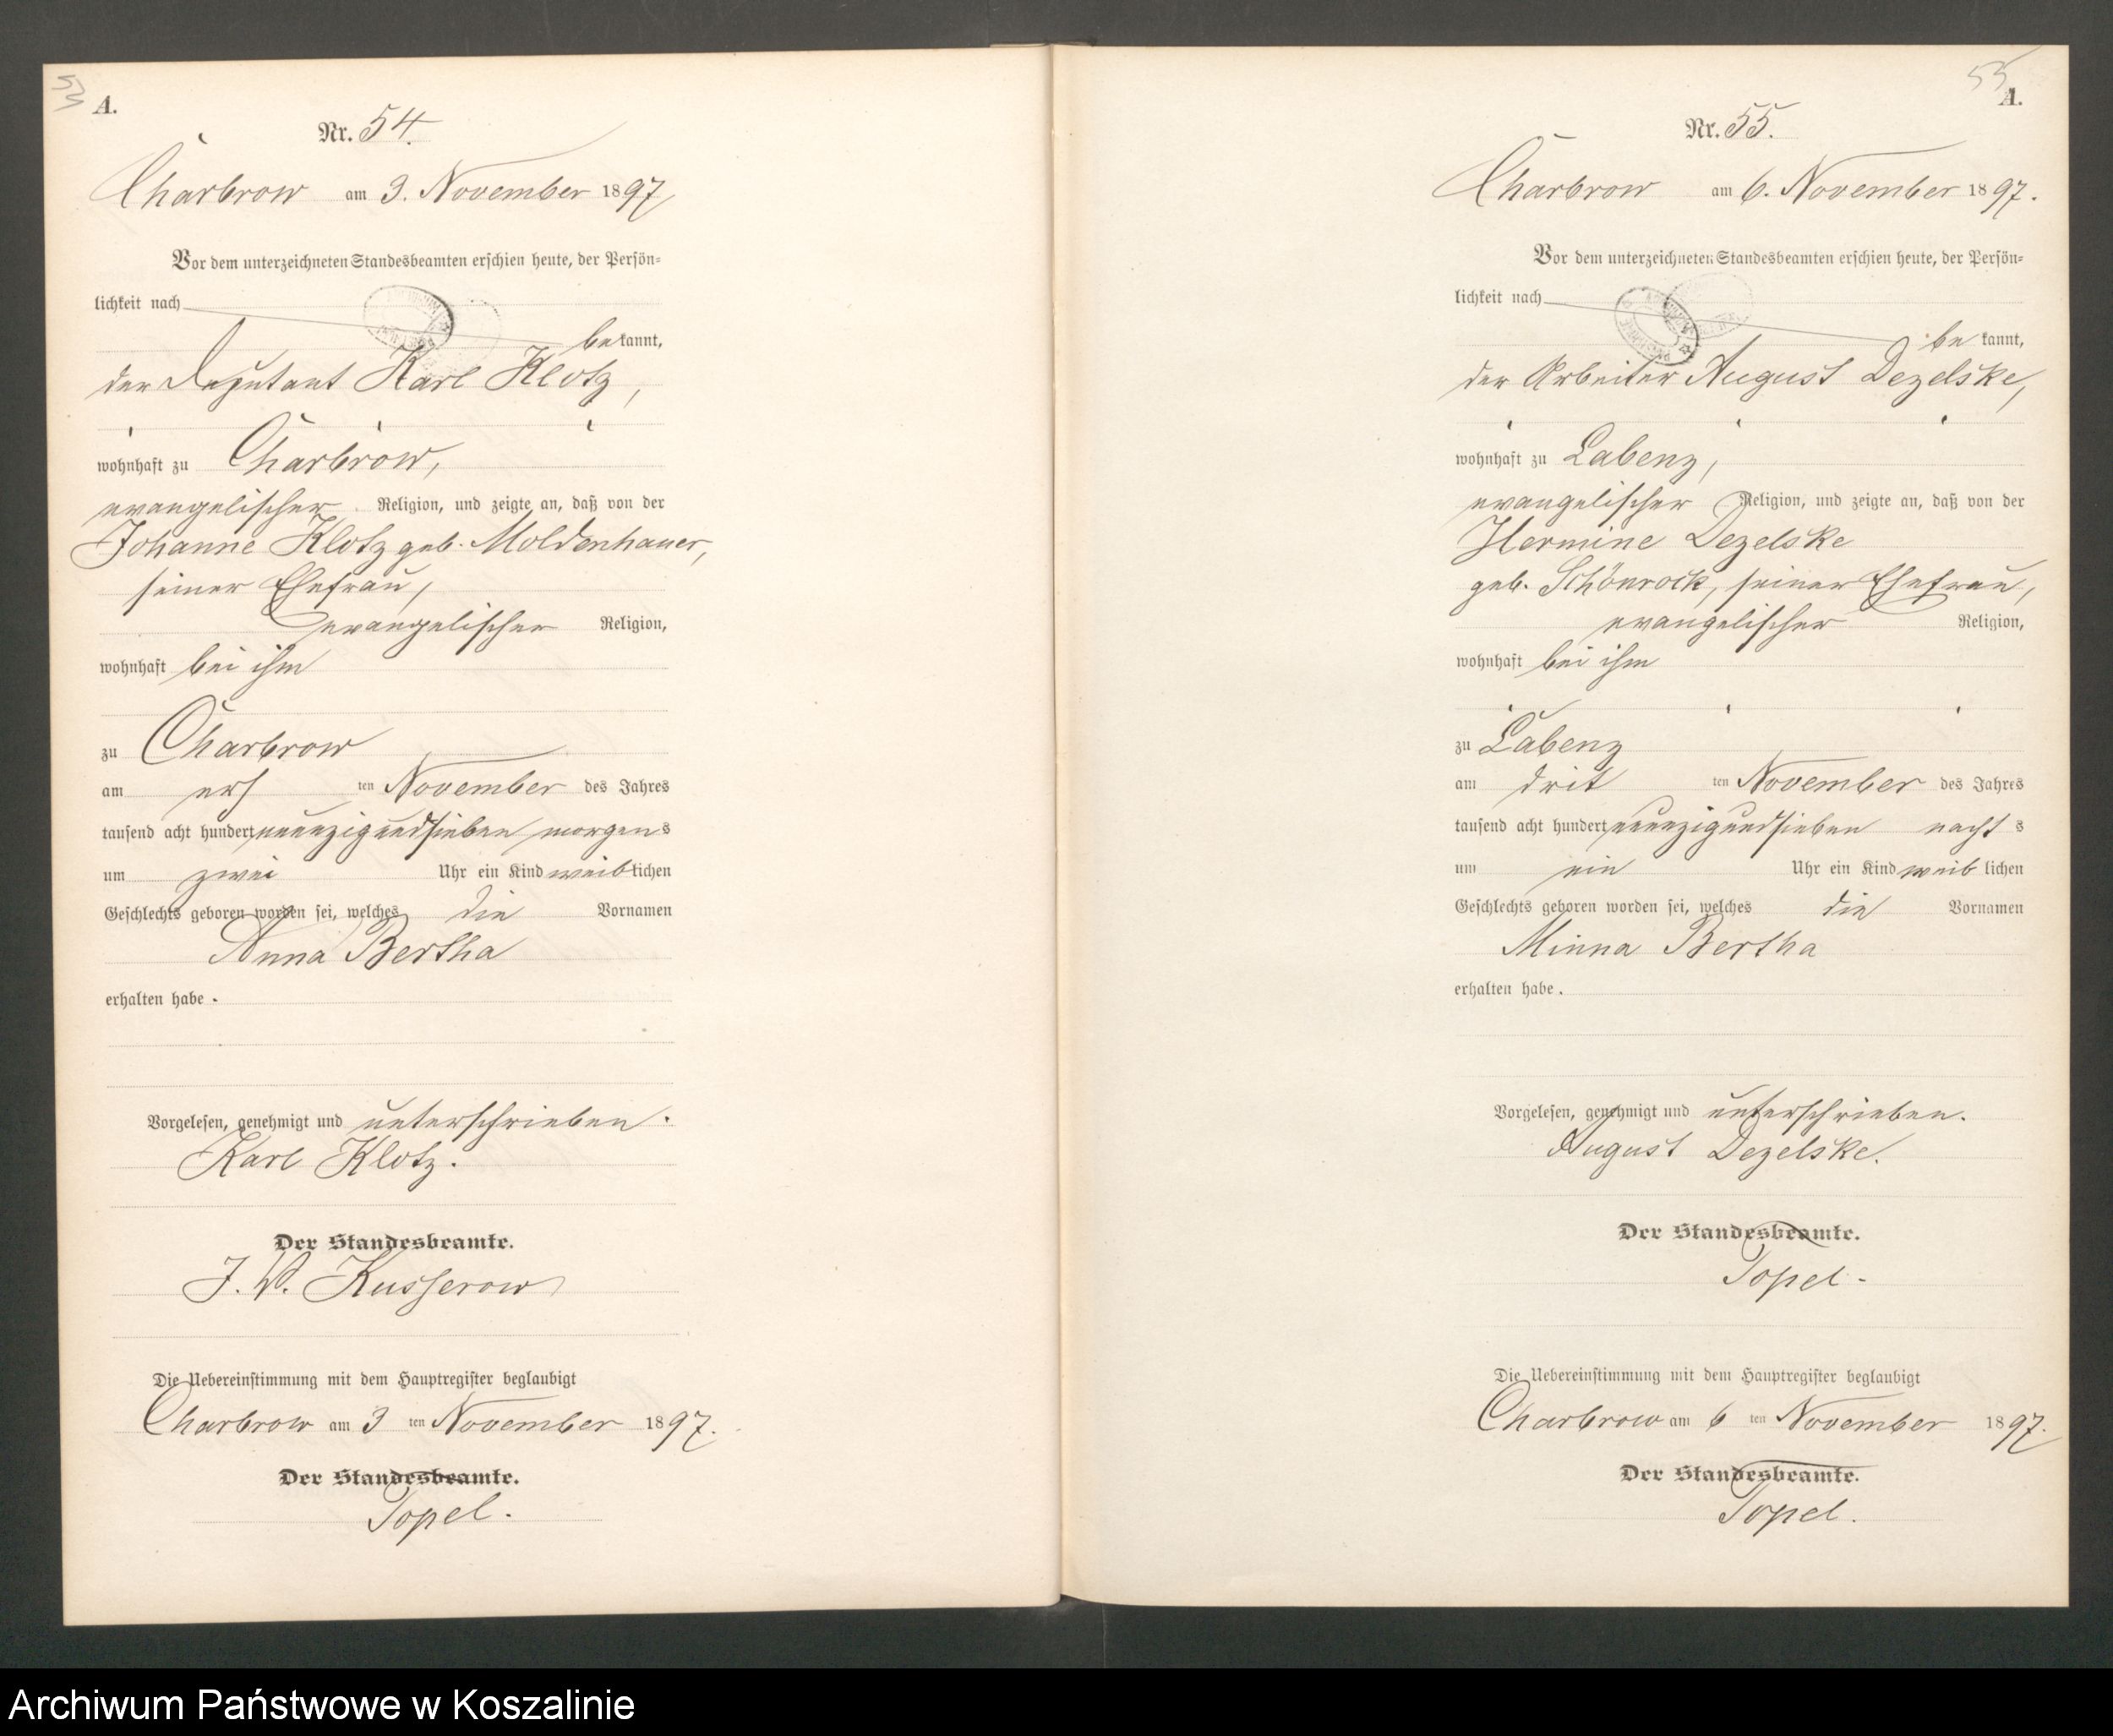 53
A.
Nr. 54.
Charbrow am 3. November 1897
Vor dem unterzeichneten Standesbeamten erschien heute, der Persön-
lichkeit nach
bekannt,
der Deputant Karl Klotz,
wohnhaft zu Charbrow,
evangelischer Religion, und zeigte an, daß von der
Johanne Klotz geb. Moldenhauer,
seiner Ehefrau,
evangelischer Religion,
wohnhaft bei ihm
zu Charbrow
am erſ ten November des Jahres
tausend acht hundert neunzigundsieben morgens
um zwei Uhr ein Kind weiblichen
Geschlechts geboren worden sei, welches die Vornamen
Anna Bertha
erhalten habe.
Vorgelesen, genehmigt und unterschrieben.
Karl Klotz.
Der Standesbeamte.
J. V. Kusserow
Die Uebereinstimmung mit dem Hauptregister beglaubigt
Charbrow am 3 ten November 1897.
Der Standesbeamte.
Topel.
55
A.
Nr. 55.
Charbrow am 6. November 1897.
Vor dem unterzeichneten Standesbeamten erschien heute, der Persön-
lichkeit nach
be kannt,
der Arbeiter August Dezelske,
wohnhaft zu Labenz,
evangelischer Religion, und zeigte an, daß von der
Hermine Dezelske
geb. Schönrock, seiner Ehefrau,
evangelischer Religion,
wohnhaft bei ihm
zu Labenz
am drit ten November des Jahres
tausend acht hundert neunzigundsieben nachts
um ein Uhr ein Kind weib lichen
Geschlechts geboren worden sei, welches die Vornamen
Minna Bertha
erhalten habe.
Vorgelesen, genehmigt und unterschrieben.
August Dezelske.
Der Standesbeamte.
Topel.
Die Uebereinstimmung mit dem Hauptregister beglaubigt
Charbrow am 6 ten November 1897.
Der Standesbeamte.
Topel.
Archiwum Państwowe w Koszalinie